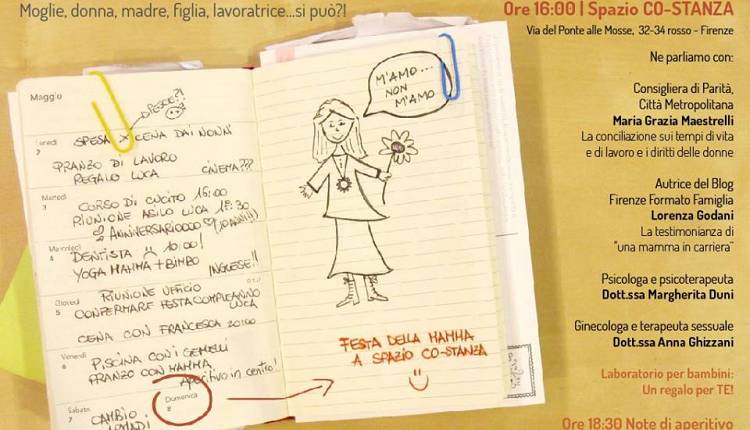 Moglie, donna, madre, figlia, lavoratrice...si può?!
Maggio
DPESCE?!
Lunedì
2
SPESA X CENA DAI NONNI
PRANZO DI LAVORO
REGALO LUCA CINEMA???
Martedì
3
CORSO DI CUCITO 15:00
RIUNIONE ASILO LUCA 17:30
ANNIVERSARIOOOO
Mercoledì
4
DENTISTA 10:00!
YOGA MAMMA + BIMBO
INGLESE!!
Giovedì
5
RIUNIONE UFFICIO
CONFERMARE FESTA COMPLEANNO
LUCA
CENA CON FRANCESCA 20:00
Venerdì
6
PISCINA CON I GEMELLI
PRANZO CON MAMMA
Aperitivo in centro!
Sabato
7
CAMBIO
Domenica
8
M'AMO...
NON
M'AMO
FESTA DELLA MAMMA
A SPAZIO CO-STANZA
Ore 16:00 | Spazio CO-STANZA
Via del Ponte alle Mosse, 32-34 rosso - Firenze
Ne parliamo con:
Consigliera di Parità,
Città Metropolitana
Maria Grazia Maestrelli
La conciliazione sui tempi di vita
e di lavoro e i diritti delle donne
Autrice del Blog
Firenze Formato Famiglia
Lorenza Godani
La testimonianza di
"una mamma in carriera"
Psicologa e psicoterapeuta
Dott.ssa Margherita Duni
Ginecologa e terapeuta sessuale
Dott.ssa Anna Ghizzani
Laboratorio per bambini:
Un regalo per TE!
Ore 18:30 Note di aperitivo